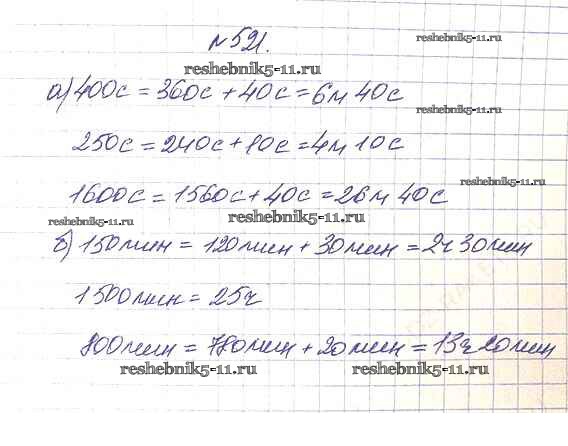 №521.
reshebnik5-11.ru
reshebnik5-11.ru
а) 400с = 360с + 40с = 6м 40с
reshebnik5-11.ru
250с = 240с + 10с = 4м 10с
reshebnik5-11.ru
1600с = 1560с + 40с = 26м 40с
reshebnik5-11.ru
reshebnik5-11.ru
б) 150мин = 120мин + 30мин = 2ч 30мин
1500мин = 25ч
800мин = 780мин + 20мин = 13ч 20мин
reshebnik5-11.ru
reshebnik5-11.ru